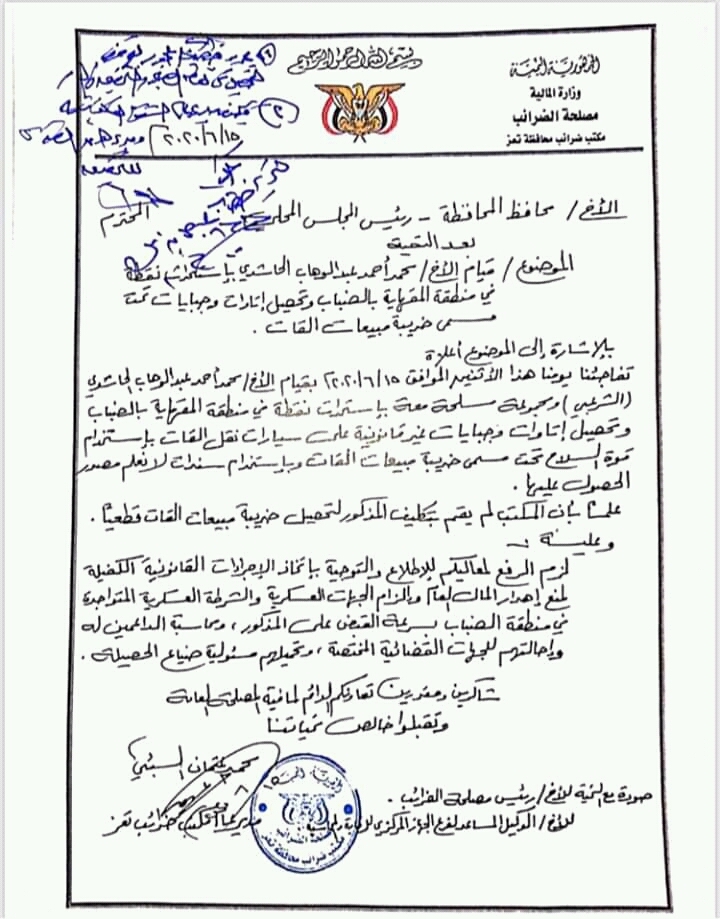 بسم الله الرحمن الرحيم
الجمهورية اليمنية
وزارة المالية
مصلحة الضرائب
مكتب ضرائب محافظة تعز
٢٠٢٠/٦/١٥
الأخ/ محافظ المحافظة - رئيس المجلس المحلي
المحترم
بعد التحية
الموضوع/ قيام الأخ/ محمد أحمد عبدالوهاب الحاشدي بإستحداث نقطة
في منطقة المقهاية بالضباب وتحصيل إتاوات وجبايات تحت
مسمى ضريبة مبيعات القات .
بالإشارة إلى الموضوع أعلاة
تفاجئنا يومنا هذا الأثنين الموافق ٢٠٢٠/٦/١٥ بقيام الأخ/ محمد أحمد عبدالوهاب الحاشدي
(الشرعبي) ومجموعة مسلحة معة بإستحداث نقطة في منطقة المقهاية بالضباب
وتحصيل إتاوات وجبايات غير قانونية على سيارات نقل القات بإستخدام
قوة السلاح تحت مسمى ضريبة مبيعات القات وبإستخدام سندات لانعلم مصدر
الحصول عليها .
علماً بأن المكتب لم يقم بتكليف المذكور لتحصيل ضريبة مبيعات القات قطعياً .
وعليــه :-
لزم الرفع لمعاليكم للإطلاع والتوجية بإتخاذ الإجرارات القانونية الكفيلة
لمنع إهدار المال العام وإلزام الجهات العسكرية والشرطة العسكرية المتواجدة
في منطقة الضباب بسرعة القبض على المذكور ، ومحاسبة الداعمين له
وإحالتهم للجهات القضائية المختصة ، وتحميلهم مسئولية ضياع الحصيلة .
شاكرين ومقدرين تعاونكم الدائم لمافية المصلحة العامة
وتقبلوا خالص تحياتنا
محمد عثمان السبئي
مدير عام مكتب ضرائب تعز
صورة مع التحية للأخ/ رئيس مصلحة الضرائب .
للأخ/ الوكيل المساعد لفرع الجهاز المركزي للرقابة والمحاسبة